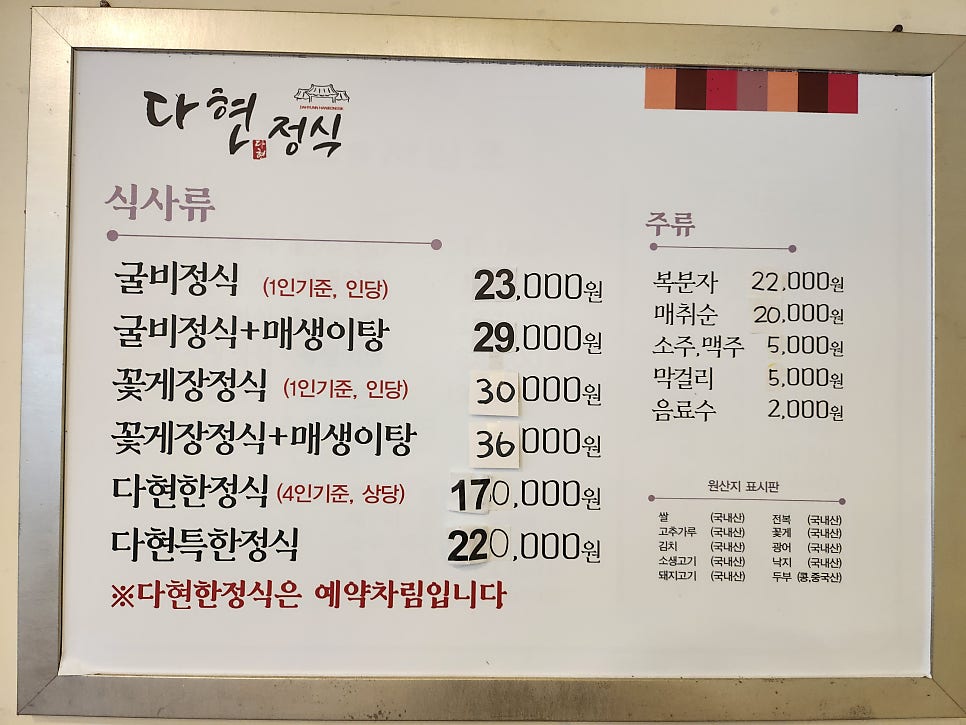 다현정식
DAHYUNN HANJEONGSIK
다현
식사류
굴비정식 (1인기준, 인당) 23,000원
굴비정식+매생이탕 29,000원
꽃게장정식 (1인기준, 인당) 30,000원
꽃게장정식+매생이탕 36,000원
다현한정식 (4인기준, 상당) 170,000원
다현특한정식 220,000원
※다현한정식은 예약차림입니다
주류
복분자 22,000원
매취순 20,000원
소주,맥주 5,000원
막걸리 5,000원
음료수 2,000원
원산지 표시판
쌀 (국내산) 전복 (국내산)
고추가루 (국내산) 꽃게 (국내산)
김치 (국내산) 광어 (국내산)
소생고기 (국내산) 낙지 (국내산)
돼지고기 (국내산) 두부 (콩,중국산)